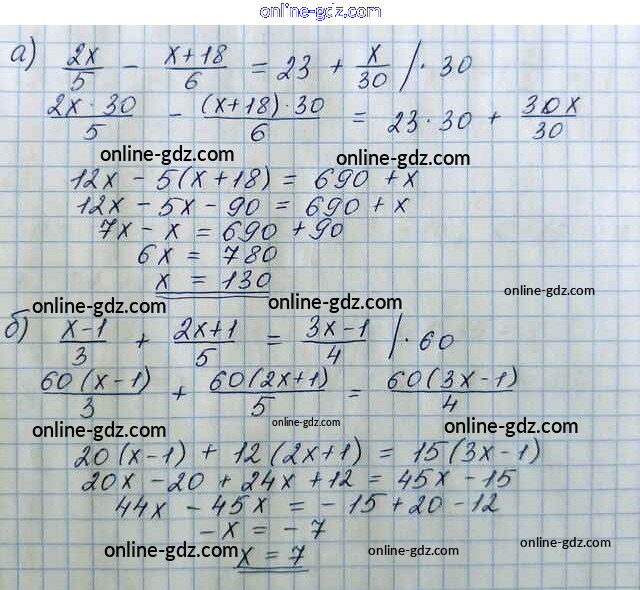 online-gdz.com
а) 2x/5 - (x+18)/6 = 23 + x/30 /· 30
2x·30/5 - (x+18)·30/6 = 23·30 + 30x/30
online-gdz.com online-gdz.com
12x - 5(x+18) = 690 + x
12x - 5x - 90 = 690 + x
7x - x = 690 + 90
6x = 780
x = 130
online-gdz.com online-gdz.com online-gdz.com
б) (x-1)/3 + (2x+1)/5 = (3x-1)/4 /· 60
60(x-1)/3 + 60(2x+1)/5 = 60(3x-1)/4
online-gdz.com online-gdz.com online-gdz.com
20(x-1) + 12(2x+1) = 15(3x-1)
20x - 20 + 24x + 12 = 45x - 15
44x - 45x = -15 + 20 - 12
-x = -7
online-gdz.com online-gdz.com online-gdz.com
x = 7